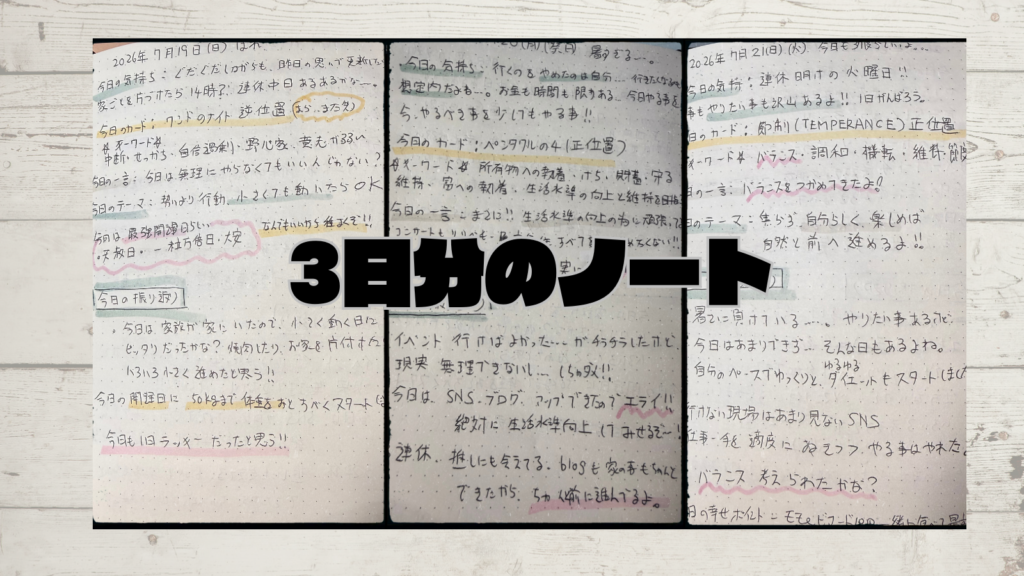 2026年 7月19日(日) はれ…
今日の気持ち:ぐだぐだしつがちも、昨日の思って更新して
家ごとを片づけたら14時?! 連休中日 あるあるかな…
今日のカード:ワンドのナイト 逆位置
#キーワード#
中断・せっかち・自信過剰・野心家
今日の一言:今日は無理にやらなくてもいい人じゃない?
今日のテーマ:勢いより行動、小さくても動いたらOK
今日は最強開運日らしい
天赦日・一粒万倍日・大安
なんでもいいから種まくぞ!!
今日の振り返り
・今日は家族が家にいたので、小さく動く日に
ピッタリだったかな? 焼肉したり、お家を片付すたり
いろいろ小さく進めたと思う!!
今日の開運日に 50kgまで体重をおとすべくスタート
今日も1日ラッキーだったと思う!!
(月)(祭日) 暑すぎる…。
今日の気持ち:行くのをやめたのは自分…
想定内だよも…。お金も時間も限りある、今日やる事を
ら、やるべき事を少しでもやる事!!
今日のカード:ペンタクルの4(正位置)
#キーワード# 所有物への執着・けち・貯蓄・守る
維持・富への執着・生活水準の向上と維持を目指
今日の一言:まさに!! 生活水準の向上の為に頑張って
イベント 行けばよかった…がチラチラしたけど、
現実 無理できないし…
今日は SNS・ブログ、アップできたので エライ!!
絶対に 生活水準向上 してみせるぞ~!
連休、推しにも会えてる。blogも家の事もちゃんと
できたから、ちゃんと前に進んでるよ。
2026年 7月21日(火) 今日も
今日の気持:連休明けの火曜日!!
事もやりたい事も沢山あるよ!! 1日がんばろう。
日のカード:節制(TEMPERANCE)正位置
キーワード# バランス・調和・機転・維持・節度
日の一言:バランスをつかめてきたよ!
日のテーマ:焦らず、自分らしく、楽しめば
自然と前へ進めるよ!!
暑さに負けている…。やりたい事あるけど、
今日はあまりできず… そんな日もあるよね。
自分のペースでゆっくりと、ダイエットもスタート
ゆるゆる
行けない現場はあまり見ないSNS
仕事・手を適度に ぬきつつ やる事はやれた。
バランス 考えられたかな?
日の幸せポイント=
3日分のノート